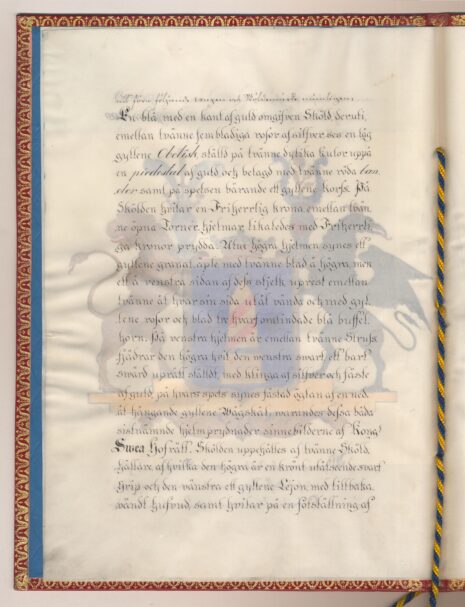 En blå, med en kant af guld omgifven Sköld deruti,
emellan twänne fembladiga rosor af silfver ses en hög
gyllene Obelisk, ställd på tränne dylika kulor uppå
en piedestal af guld och belagd med tvänne röda ban
der samt på spetsen bärande ett gyllene korss. På
Skölden hvilar en Friherrlig krona, emellan tvän,
ne öpna Torner, hjelmar, likaledes med Friherrli,
ga kronor prydda. Utur högra hjelmen synes ett
gyllene granat, äple med tvänne blad å högra, men
ett å venstra sidan af dess stjelk, uprest emellan
tvänne åt hvar sin sida utåt vända och med gyl,
lene rosor och blad tre hvarf omvindade blå buffel,
horn: På venstra hjelmen är emellan tvänne Struss
fjädrar den högra hvit, den venstra svart, ett bart
swärd uprätt stäldt, med klinga af silfver och fäste
af guld, på hvars spets synes fästad öglan af en ned,
åt hängande gyllene Wågskål, warandes dessa båda
sistnämnde hjelmprydnader sinnebilderne af Kongl
Swea Hofrätt. Skölden uppehålles af tvänne Sköld,
hållare af hvilka den högra är en krönt utåtseende svart
Grip och den vänstra ett gyllene Lejon, med tillbaka,
vändt hufvud, samt hvilar på en fotställning af